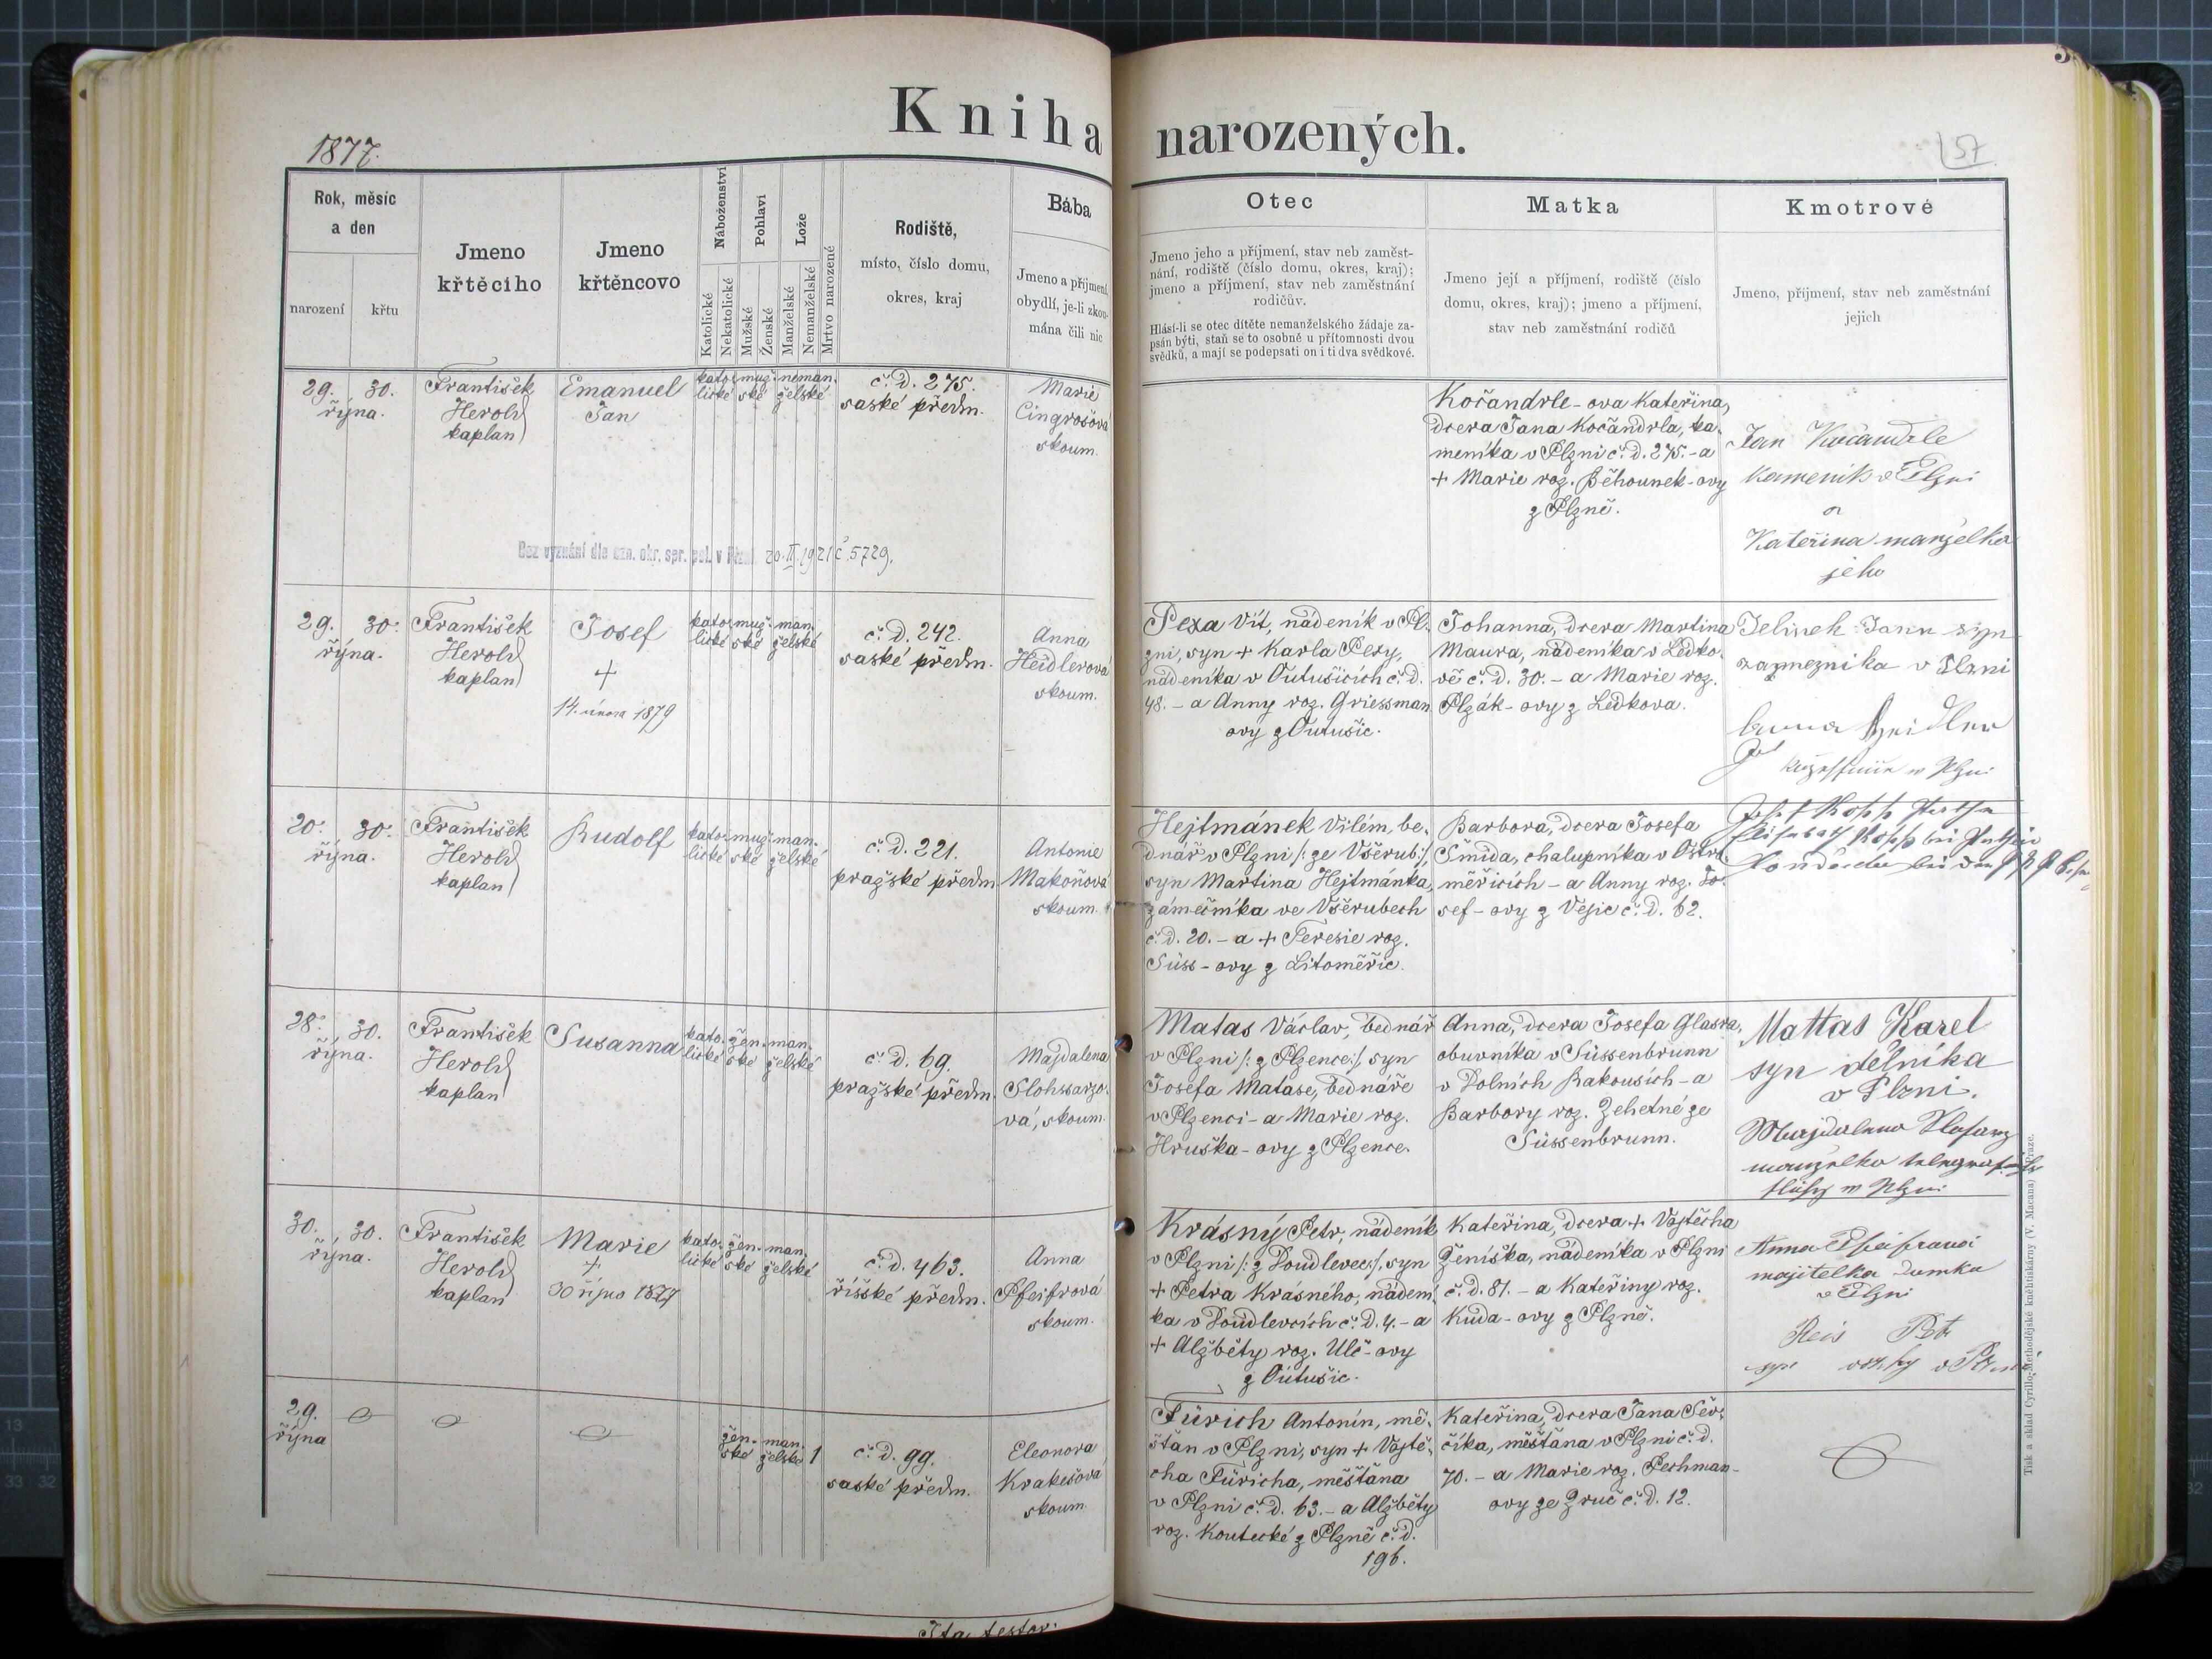 1877.
Kniha narozených.
57
Rok, měsíc
a den
narození
křtu
Jmeno
křtěcího
Jmeno
křtěncovo
Náboženství
Katolické
Nekatolické
Pohlaví
Mužské
Ženské
Lože
Manželské
Nemanželské
Mrtvo narozené
Rodiště,
místo, číslo domu,
okres, kraj
Bába
Jmeno a příjmení
obydlí, je-li zkou-
mána čili nic
Otec
Jmeno jeho a příjmení, stav neb zaměst-
nání, rodiště (číslo domu, okres, kraj);
jmeno a příjmení, stav neb zaměstnání
rodičův.
Hlásí-li se otec dítěte nemanželského žádaje za-
psán býti, staň se to osobně u přítomnosti dvou
svědků, a mají se podepsati on i ti dva svědkové.
Matka
Jmeno její a příjmení, rodiště (číslo
domu, okres, kraj); jmeno a příjmení,
stav neb zaměstnání rodičů
Kmotrové
Jmeno, příjmení, stav neb zaměstnání
jejich
29. 30.
října.
František
Herold
kaplan
Emanuel
Jan
kato- muž- neman-
lické skéželské
č. d. 275.
saské předm.
Marie
Cingrošová
skoum.
Kočandrle-ova Kateřina,
dcera Jana Kočandrla, ka-
meníka v Plzni č. d. 275. - a
+ Marie roz. Běhounek-ovy
z Plzně.
Jan Kočandrle
kameník v Plzni
a
Kateřina manželka
jeho
Bez vyznání dle ozn. okr. spr. pol. v Plzni 20.II.1921 č. 5729.
29. 30.
října.
František
Herold
kaplan
Josef
+
14. února 1879
kato- muž- man-
lické ské želské
č. d. 242.
saské předm.
Anna
Heidlerová
skoum.
Pexa Vít, nádeník v Pl-
zni, syn + Karla Pexy,
nádeníka v Outušicích č. d.
48. - a Anny roz. Griessman
ovy z Outušic.
Johanna, dcera Martina
Maura, nádeníka v Ledko-
vě č. d. 30. - a Marie roz.
Plzák-ovy z Ledkova.
Jelinek Jann syn
v Plzni
20. 30.
října.
František
Herold
kaplan
Rudolf
kato- muž- man-
lické ské želské
č. d. 221.
pražské předm.
Antonie
Makoňová
skoum.
Hejtmánek Vilém, be-
dnář v Plzni /: ze Všerub:/,
syn Martina Hejtmánka,
zámečníka ve Všerubech
č. d. 20. - a + Teresie roz.
Süss-ovy z Litoměřic.
Barbora, dcera Josefa
Šmída, chalupníka v Ostro-
měřicích - a Anny roz. Jo-
sef-ovy z Vejic č. d. 62.
28. 30.
října.
František
Herold
kaplan
Susanna
kato- žen- man-
lické ské želské
č. d. 69.
pražské předm.
Majdalena
Slohssarzo-
vá, skoum.
Matas Václav, bednář
v Plzni /: z Plzence:/, syn
Josefa Matase, bednáře
v Plzenci - a Marie roz.
Hruška-ovy z Plzence.
Anna, dcera Josefa Glasra,
obuvníka v Süssenbrunn
v Dolních Rakousích - a
Barbory roz. Zehetné ze
Süssenbrunn.
Mattas Karel
syn dělníka
v Plzni.
30. 30.
října.
František
Herold
kaplan
Marie
+
30 říjno 1877
kato- žen- man-
lické ské želské
č. d. 463.
říšské předm.
Anna
Pfeifrová
skoum.
Krásný Petr, nádeník
v Plzni /: z Doudlevec:/, syn
+ Petra Krásného, nádení-
ka v Doudlevcích č. d. 4. - a
+ Alžběty roz. Ulč-ovy
z Outušic.
Kateřina, dcera + Vojtěcha
Ženíška, nádeníka v Plzni
č. d. 81. - a Kateřiny roz.
Kuda-ovy z Plzně.
Anna
majitelka domku
v Plzni
29.
října
žen- man-
ské želské 1
č. d. 99.
saské předm.
Eleonora
Krakešová
skoum.
Fürich Antonín, mě-
šťan v Plzni, syn + Vojtě-
cha Füricha, měšťana
v Plzni č. d. 63. - a Alžběty
roz. Koutecké z Plzně č. d.
196.
Kateřina, dcera Jana Sev-
číka, měšťana v Plzni č. d.
70. - a Marie roz. Pechman-
ovy ze Zruč č. d. 12.
Tisk a sklad Cyrillo-Methodějské knihtiskárny (V. Macana)